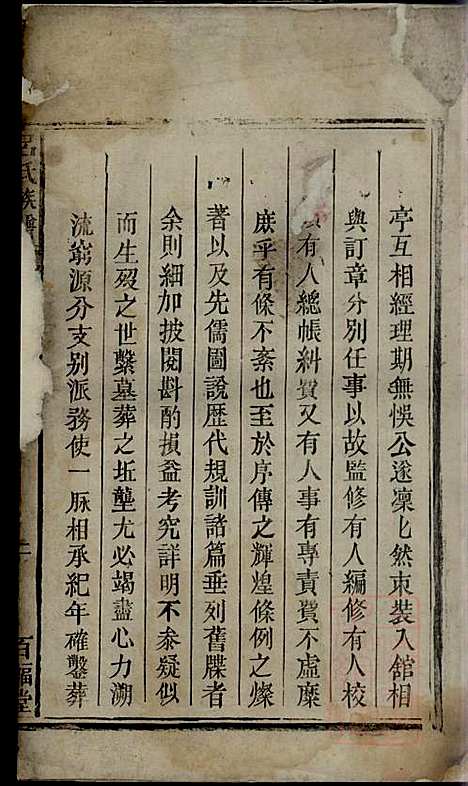 亭互相經理期無悞公遂凜凜然束裝入舘相
與訂章分別任事以故監修有人編修有人校
有人總帳糾費又有人事有專責費不虛糜
庶乎有條不紊也至於序傳之輝煌條例之燦
著以及先儒圖說歷代規訓諸篇垂列舊牒者
余則細加披閱斟酌損益考究詳明不叅疑似
而生殁之世繫墓葬之坵壟尤必竭盡心力溯
流窮源分支別派務使一脉相承紀年確鑿葬
呂氏族譜
百福堂